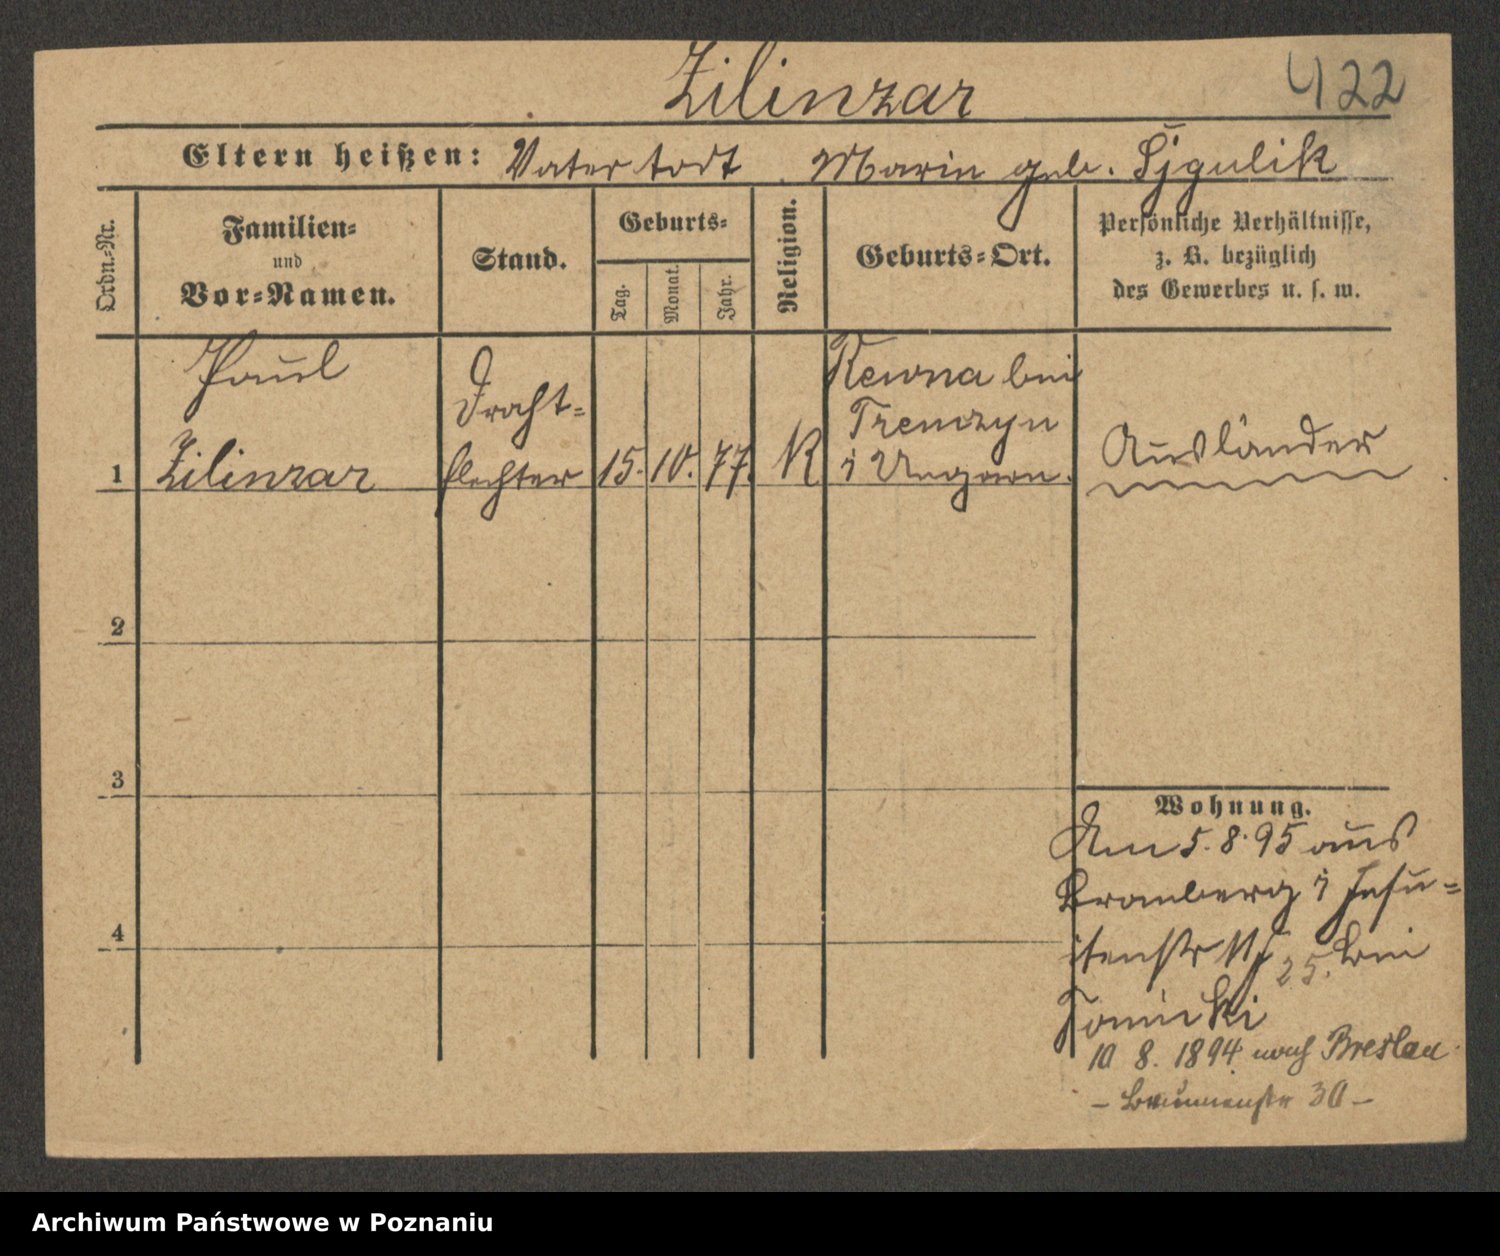 Zilinzar 422
Eltern heißen: Vater todt Marie geb. Sjgulik
Ordn.-Nr.
Familien-
und
Vor-Namen.
Stand.
Geburts-
Tag.
Monat.
Jahr.
Religion.
Geburts-Ort.
Persönliche Verhältnisse,
z. B. bezüglich
des Gewerbes u. s. w.
Paul
Zilinzar
Draht-
flechter
15. 10. 77. K
bei
Trenczyn
i Ungarn.
Ausländer
1
2
3
4
Wohnung.
Am 5. 8. 95 aus
Bromberg i Jesu-
itenstr 25. bei
Tomicki
10 8. 1894 nach Breslau
- 30 -
Archiwum Państwowe w Poznaniu